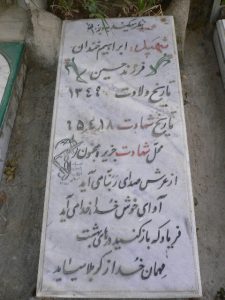 شهید ابراهیم خندان
فرزند حسین
تاریخ ولادت ۱۳۴۹
تاریخ شهادت ۶۵،۴،۱۸
محل شهادت جزیره مجنون
از عرش صدای ربنا می آید
آوای خوش خدا خدا می آید
فریاد که باز کنید درهای بهشت
مهمان خدا ز کربلا می آید